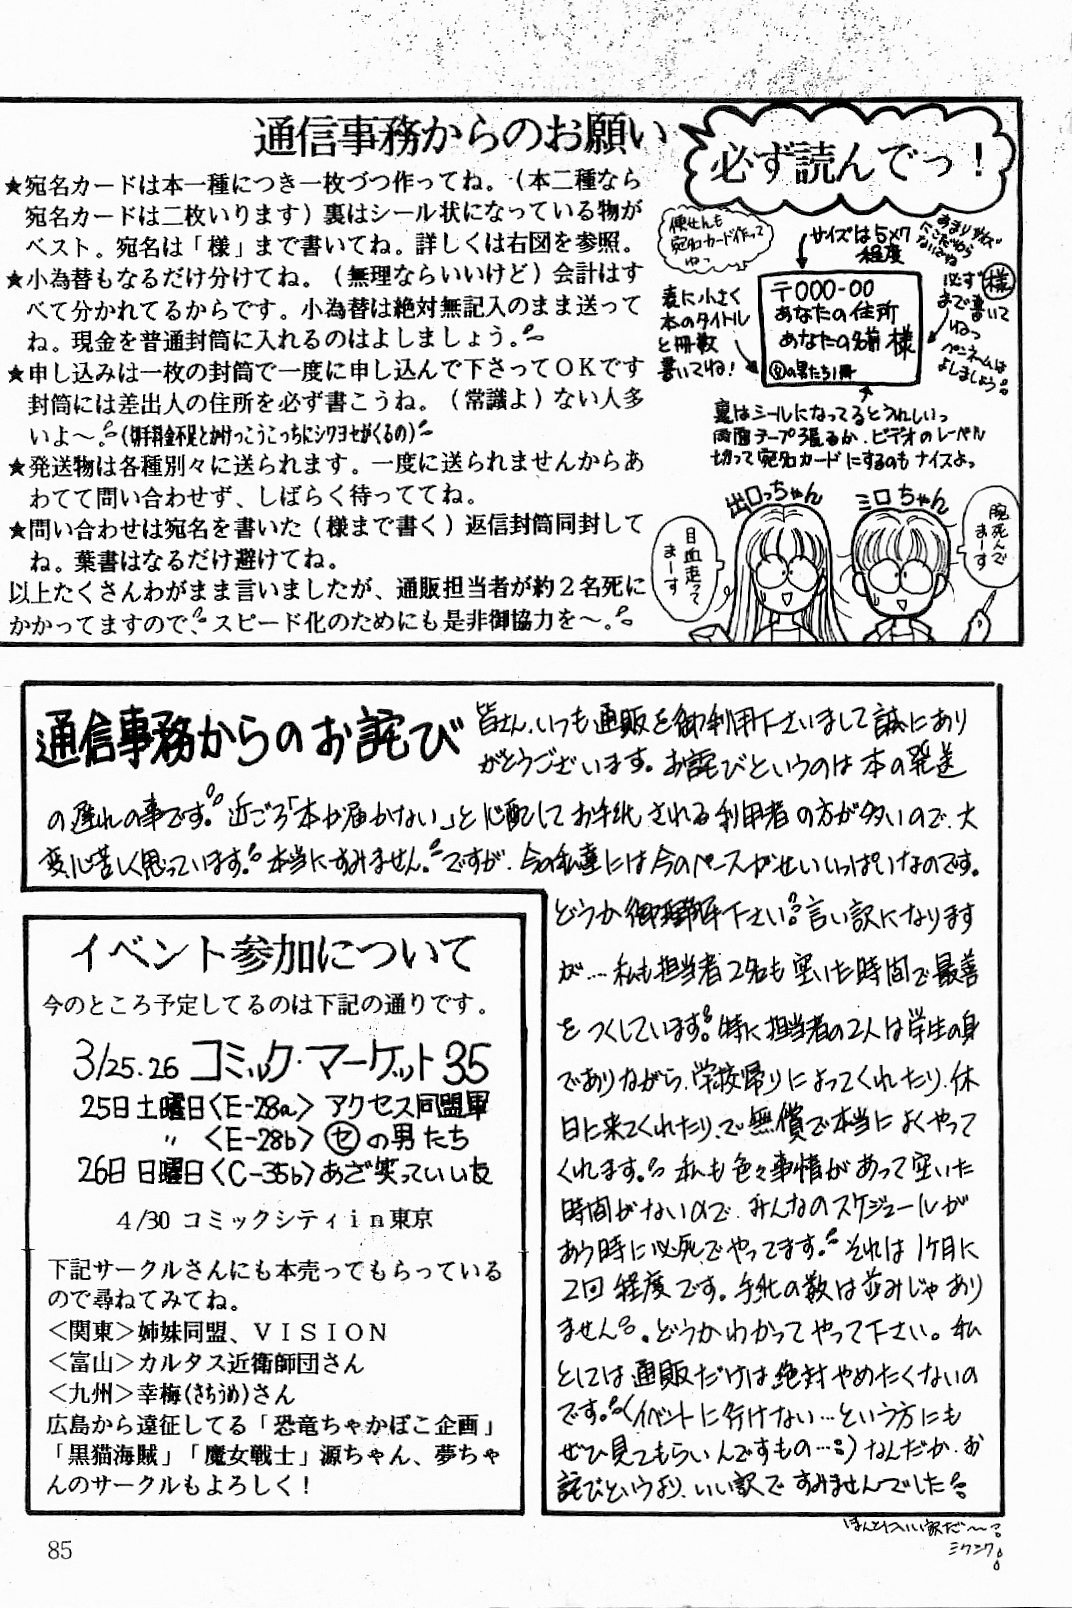 通信事務からのお願い
必ず読んでっ！
★宛名カードは本一種につき一枚づつ作ってね。（本二種なら
宛名カードは二枚いります）裏はシール状になっている物が
ベスト。宛名は「様」まで書いてね。詳しくは右図を参照。
★小為替もなるだけ分けてね。（無理ならいいけど）会計はす
べて分かれてるからです。小為替は絶対無記入のまま送って
ね。現金を普通封筒に入れるのはよしましょう。
★申し込みは一枚の封筒で一度に申し込んで下さってＯＫです
封筒には差出人の住所を必ず書こうね。（常識よ）ない人多
いよ〜。（切手料金不足とかけっこうこっちにシワヨセがくるの）
★発送物は各種別々に送られます。一度に送られませんからあ
わてて問い合わせず、しばらく待っててね。
★問い合わせは宛名を書いた（様まで書く）返信封筒同封して
ね。葉書はなるだけ避けてね。
以上たくさんわがまま言いましたが、通販担当者が約２名死に
かかってますので、スピード化のためにも是非御協力を〜。
便せんも
宛名カード作って
ねっ
サイズは5×7
程度
あまりサイズ
にこだわら
ないでね
必ず様
まで書いて
ねっ
ペンネームは
よしましょう
表に小さく
本のタイトル
と冊数
書いてね！
〒000-00
あなたの住所
あなたの名前 様
㋝の男たち1冊
裏はシールになってるとうれしいっ
両面テープ張るか、ビデオのレーベル
切って宛名カードにするのもナイスよっ
出口っちゃん
ミロちゃん
目血走って
まーす
腕死んで
まーす
通信事務からのお詫び
皆さん、いつも通販を御利用下さいまして誠にあり
がとうございます。お詫びというのは本の発送
の遅れの事です。近ごろ「本が届かない」と心配してお手紙される利用者の方が多いので、大
変心苦しく思っています。本当にすみません。ですが、今の私達には今のペースがせいいっぱいなのです。
どうか御理解下さい。言い訳になります
が…私も担当者2名も空いた時間で最善
をつくしています。特に担当者の2人は学生の身
でありながら、学校帰りによってくれたり、休
日に来てくれたり、で無償で本当によくやって
くれます。私も色々事情があって空いた
時間がないので、みんなのスケジュールが
あう時に必死でやってます。それは1ケ月に
2回程度です。手紙の数は並みじゃあり
ません。どうかわかってやって下さい。私
としては通販だけは絶対やめたくないの
です。（イベントに行けない…という方にも
ぜひ見てもらいんですもの…）なんだか、お
詫びというより、いい訳ですみませんでした
ほんとにいい訳だ〜
シクシク
イベント参加について
今のところ予定してるのは下記の通りです。
3/25.26 コミック・マーケット35
25日土曜日〈E-28a〉アクセス同盟軍
〃 〈E-28b〉㋝の男たち
26日日曜日〈C-35b〉あざ笑っていい友
4/30 コミックシティｉｎ東京
下記サークルさんにも本売ってもらっている
ので尋ねてみてね。
＜関東＞姉妹同盟、ＶＩＳＩＯＮ
＜富山＞カルタス近衛師団さん
＜九州＞幸梅（さちうめ）さん
広島から遠征してる「恐竜ちゃかぽこ企画」
「黒猫海賊」「魔女戦士」源ちゃん、夢ちゃ
んのサークルもよろしく！
85